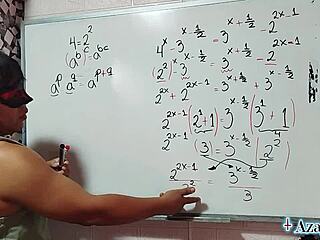 4 = 2²
(a^b)^c = a^bc
a^p a^q = a^p+q
4^x - 3^x-½ = 3^x+½ - 2^2x-1
(2²)^x - 3^x-½ = 3^x+½ - 2^2x-1
2^2x + 2^2x-1 = 3^x+½ + 3^x-½
2^2x-1 (2¹+1) = 3^x-½ (3¹+1)
4
2^2x-1 (3) = 3^x-½ (2²)
2^2x-1 / 2² = 3^x-½ / 3
+ Aza